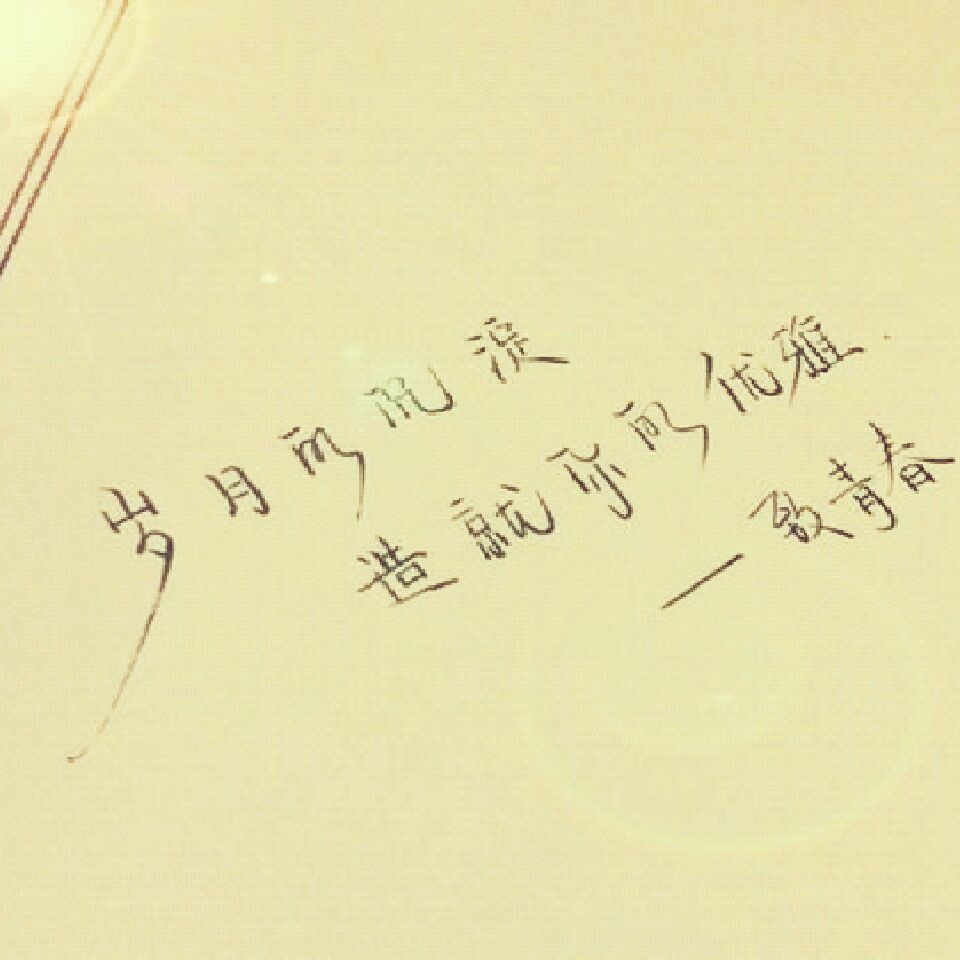 岁月的沉淀
造就你的优雅
—致青春